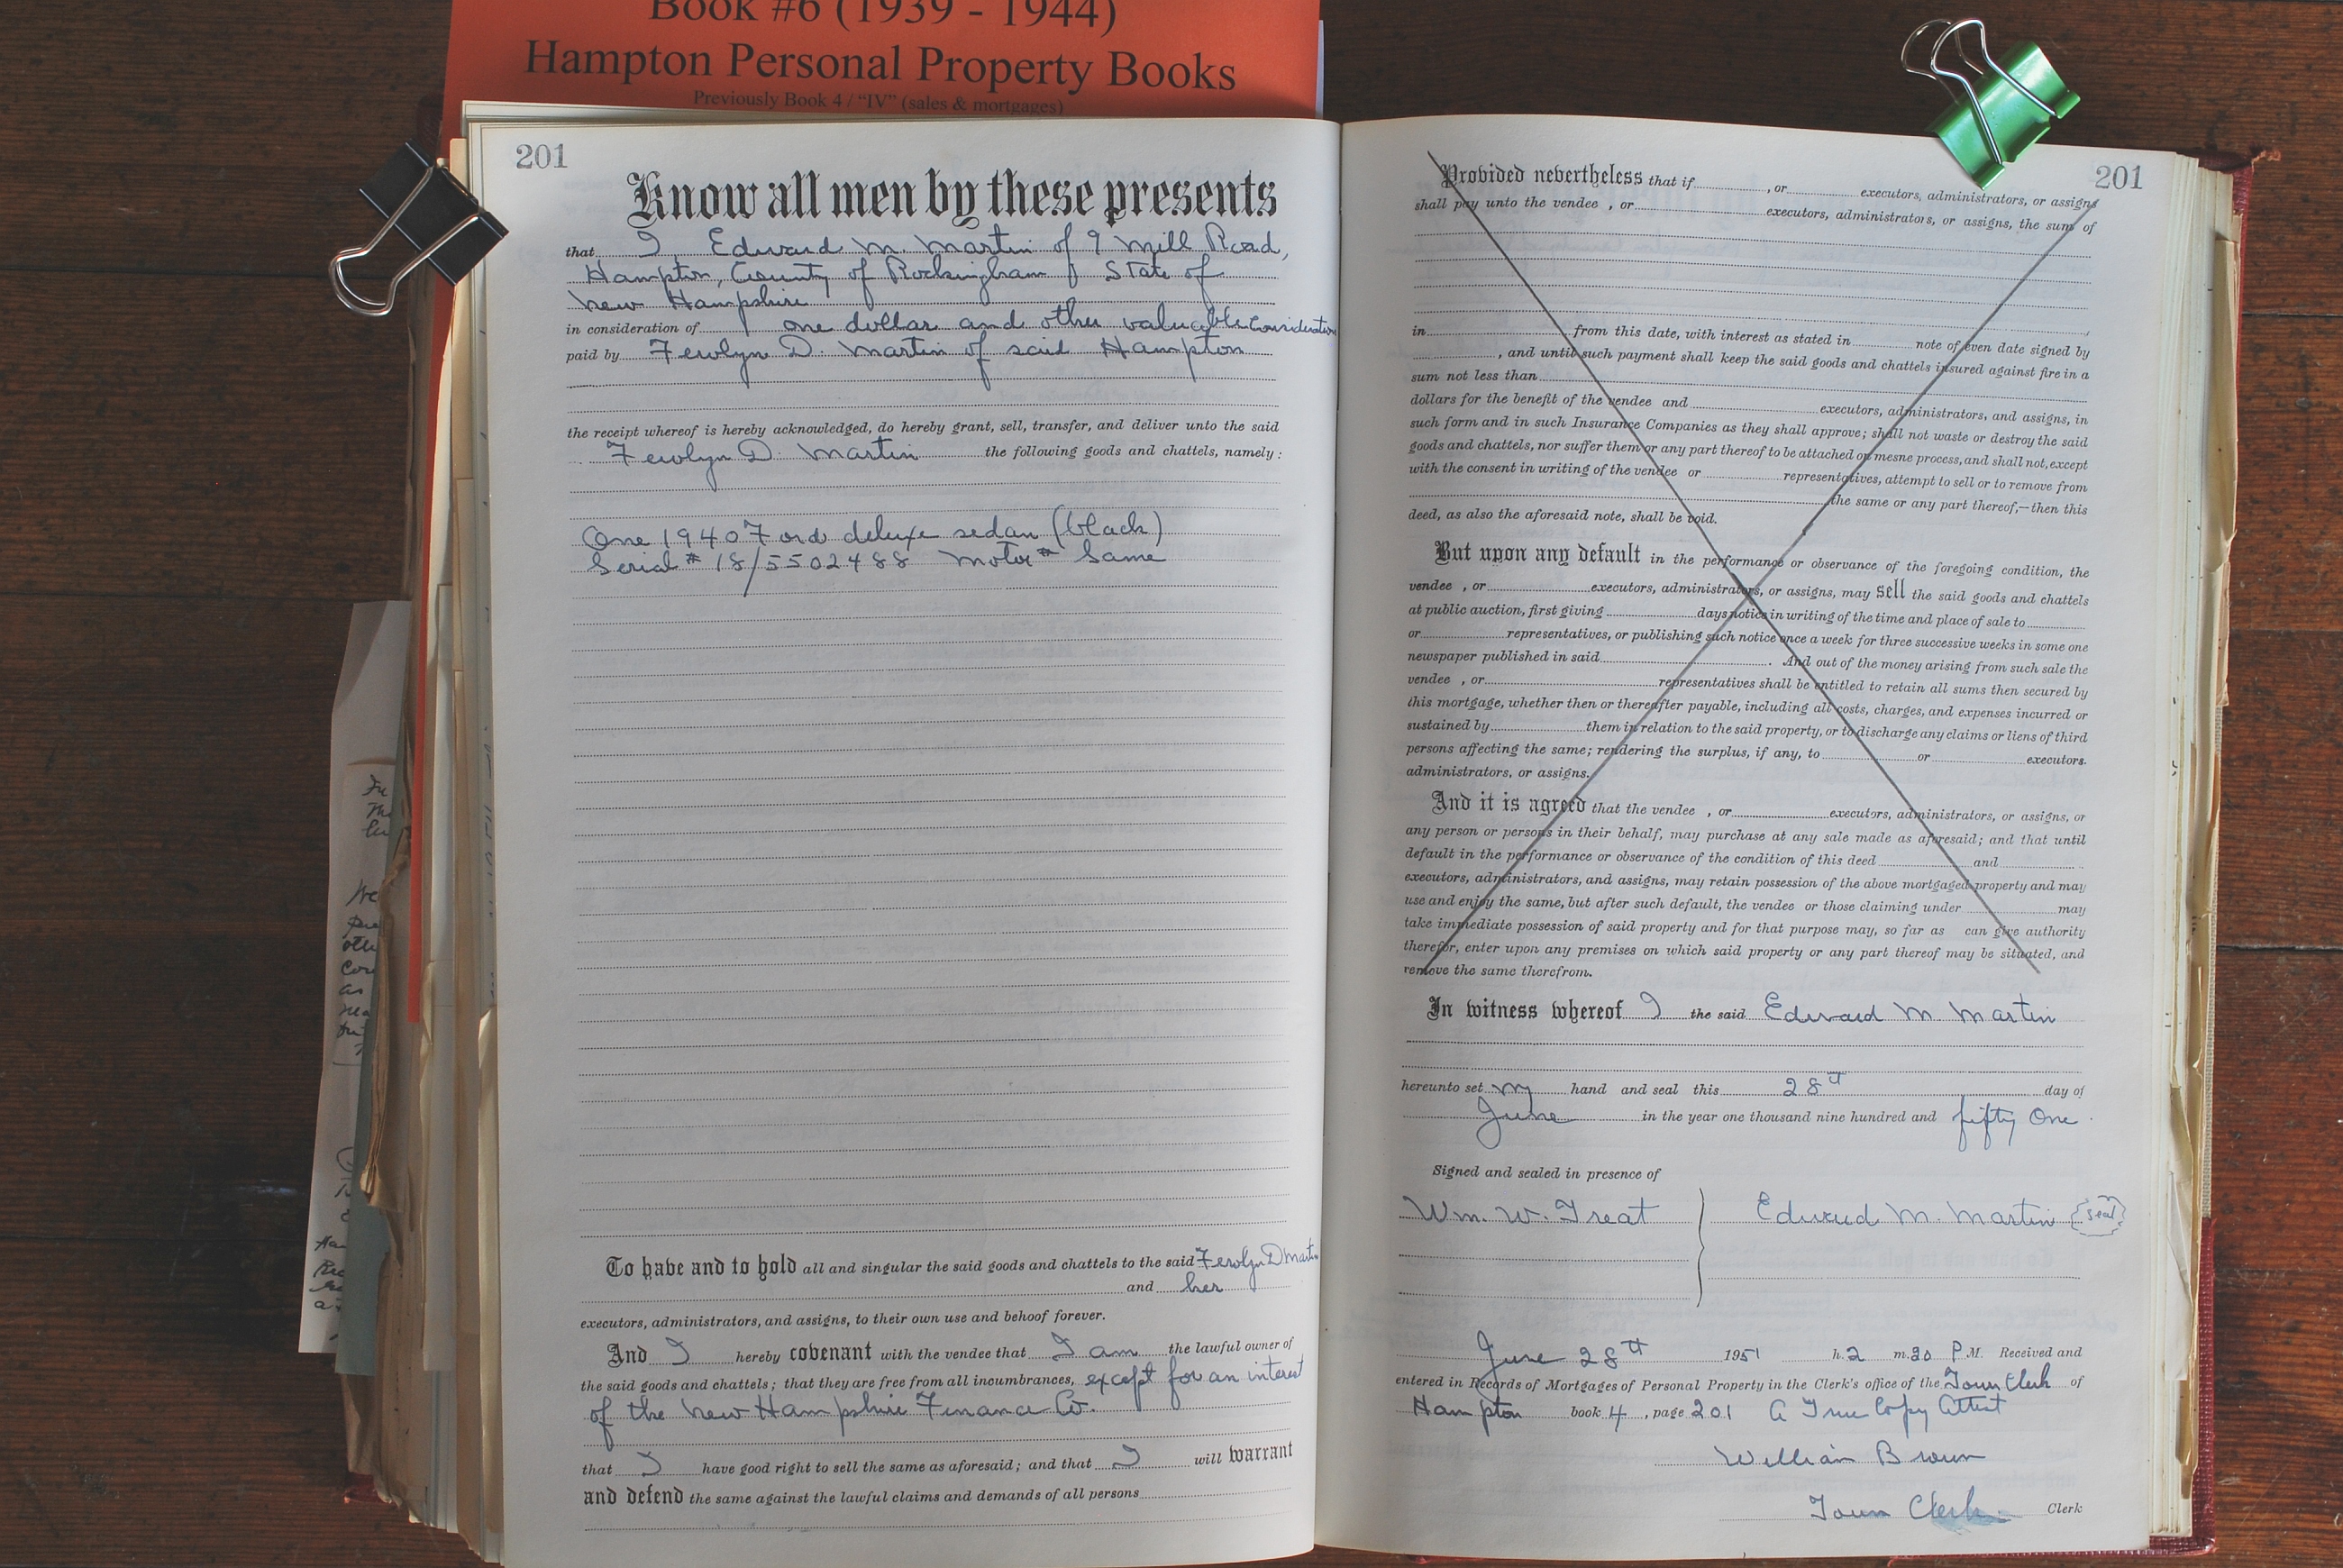 Book #6 (1939 - 1944)
Hampton Personal Property Books
Previously Book 4 / “IV” (sales & mortgages)
201
Know all men by these presents
that I, Edward M. Martin of 9 Mill Road,
Hampton, County of Rockingham & State of
New Hampshire
in consideration of one dollar and other valuable consideration
paid by Ferolyn D. Martin of said Hampton
the receipt whereof is hereby acknowledged, do hereby grant, sell, transfer, and deliver unto the said
Ferolyn D. Martin the following goods and chattels, namely:
One 1940 Ford deluxe sedan (black)
Serial # 18/5502488 Motor # Same
To have and to hold all and singular the said goods and chattels to the said Ferolyn D Martin
and her
executors, administrators, and assigns, to their own use and behoof forever.
And I hereby covenant with the vendee that I am the lawful owner of
the said goods and chattels; that they are free from all incumbrances, except for an interest
of the New Hampshire Finance Co.
that I have good right to sell the same as aforesaid; and that I will warrant
and defend the same against the lawful claims and demands of all persons
201
Provided nevertheless that if , or executors, administrators, or assigns
shall pay unto the vendee , or executors, administrators, or assigns, the sum of
in from this date, with interest as stated in note of even date signed by
, and until such payment shall keep the said goods and chattels insured against fire in a
sum not less than
dollars for the benefit of the vendee and executors, administrators, and assigns, in
such form and in such Insurance Companies as they shall approve; shall not waste or destroy the said
goods and chattels, nor suffer them or any part thereof to be attached on mesne process, and shall not, except
with the consent in writing of the vendee or representatives, attempt to sell or to remove from
the same or any part thereof,—then this
deed, as also the aforesaid note, shall be void.
But upon any default in the performance or observance of the foregoing condition, the
vendee , or executors, administrators, or assigns, may sell the said goods and chattels
at public auction, first giving days notice in writing of the time and place of sale to
or representatives, or publishing such notice once a week for three successive weeks in some one
newspaper published in said . And out of the money arising from such sale the
vendee , or representatives shall be entitled to retain all sums then secured by
this mortgage, whether then or thereafter payable, including all costs, charges, and expenses incurred or
sustained by them in relation to the said property, or to discharge any claims or liens of third
persons affecting the same; rendering the surplus, if any, to or executors.
administrators, or assigns.
And it is agreed that the vendee , or executors, administrators, or assigns, or
any person or persons in their behalf, may purchase at any sale made as aforesaid; and that until
default in the performance or observance of the condition of this deed and
executors, administrators, and assigns, may retain possession of the above mortgaged property and may
use and enjoy the same, but after such default, the vendee or those claiming under may
take immediate possession of said property and for that purpose may, so far as can give authority
therefor, enter upon any premises on which said property or any part thereof may be situated, and
remove the same therefrom.
In witness whereof I the said Edward M Martin
hereunto set my hand and seal this 28th day of
June in the year one thousand nine hundred and fifty One.
Signed and sealed in presence of
Wm. W. Treat Edward M. Martin (seal)
June 28th 1951 h. 2 m. 20 P.M. Received and
entered in Records of Mortgages of Personal Property in the Clerk's office of the Town Clerk of
Hampton book 4, page 201 A True Copy Attest
William Brown
Town Clerk Clerk